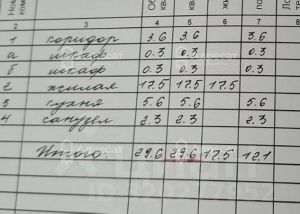 Об
2 3 4 5 6 7
1 коридор 3.6 3.6 3.6
а шкаф 0.3 0.3 0.3
б шкаф 0.3 0.3 0.3
2 жилая 17.5 17.5 17.5
3 кухня 5.6 5.6 5.6
4 санузел 2.3 2.3 2.3
Итого: 29.6 29.6 17.5 12.1